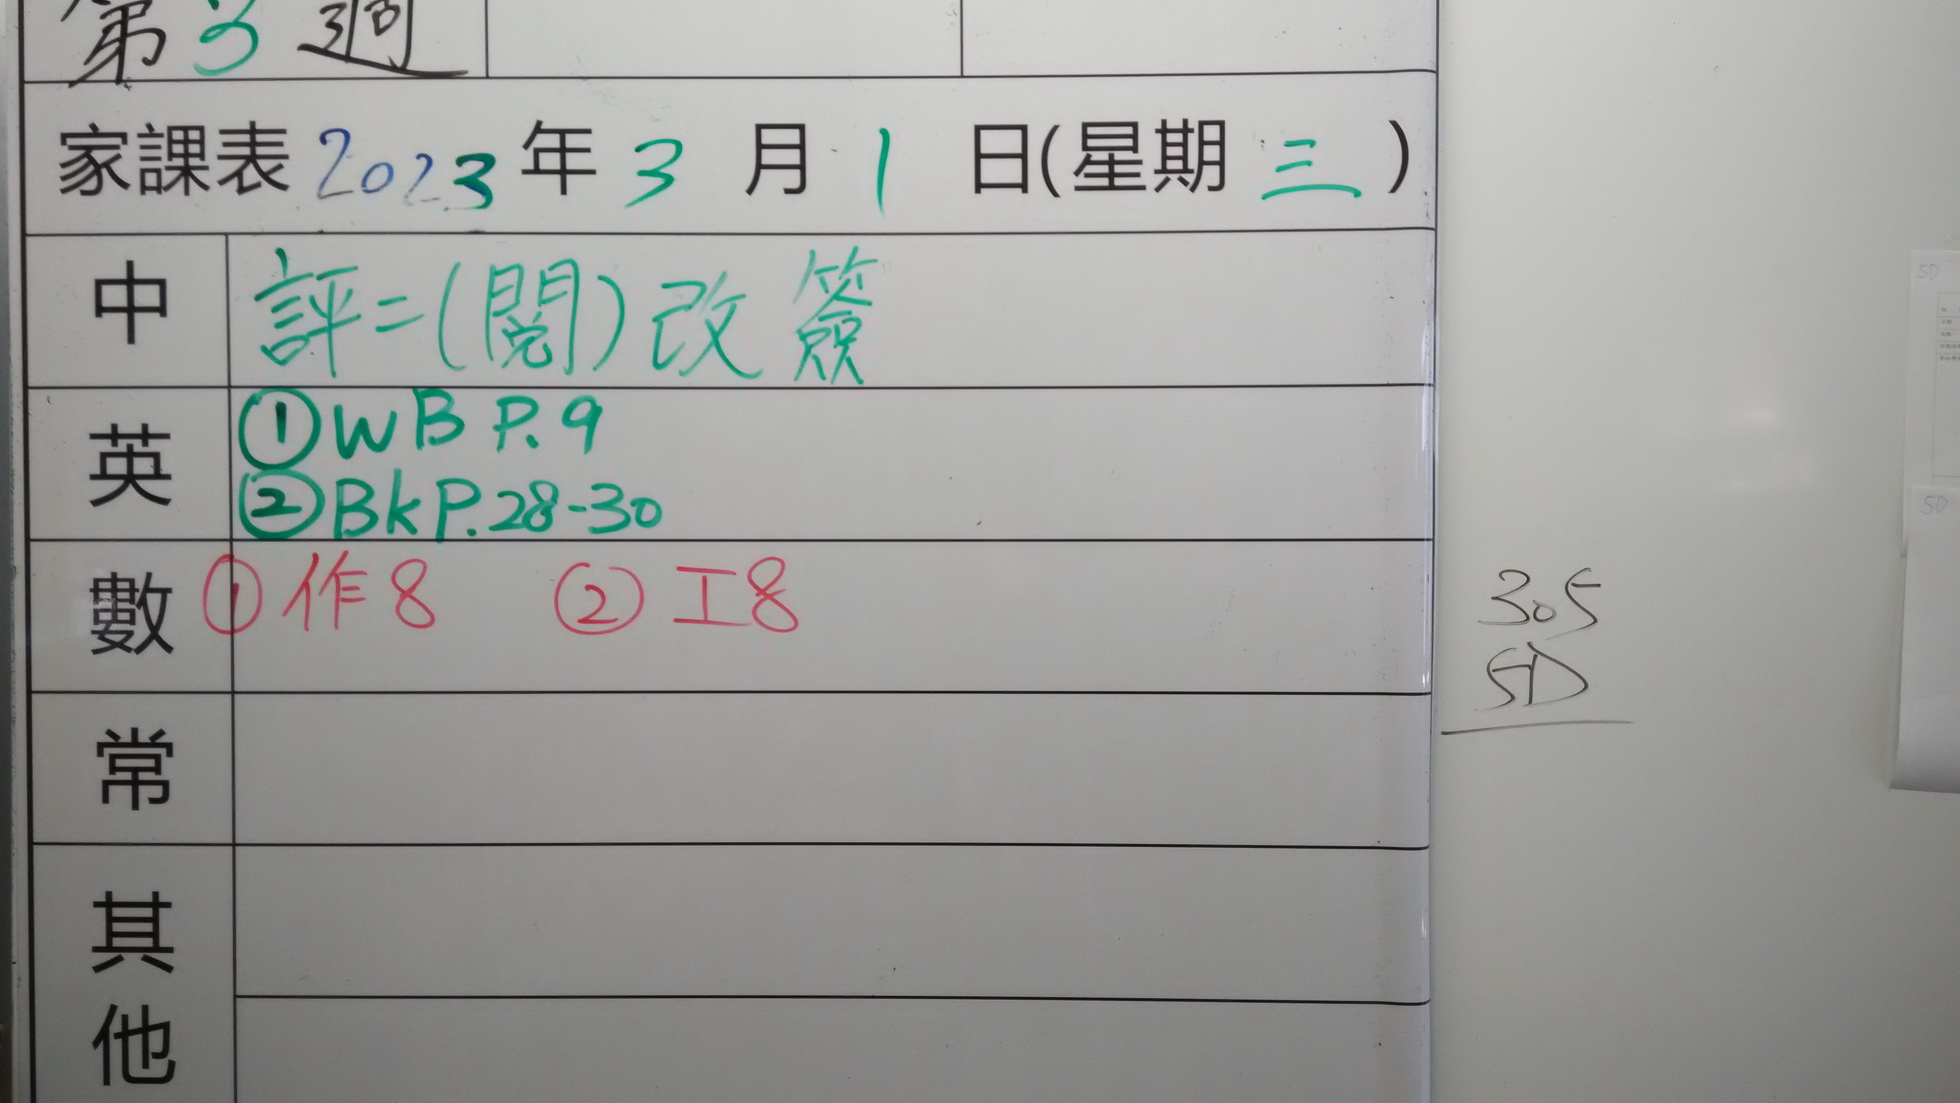 第3週
家課表 2023 年 3 月 1 日(星期 三 )
中 評二(閱)改簽
英 ①WB P.9
②Bk P.28-30
數 ①作8 ②工8
305
5D
常
其
他
5D
5D